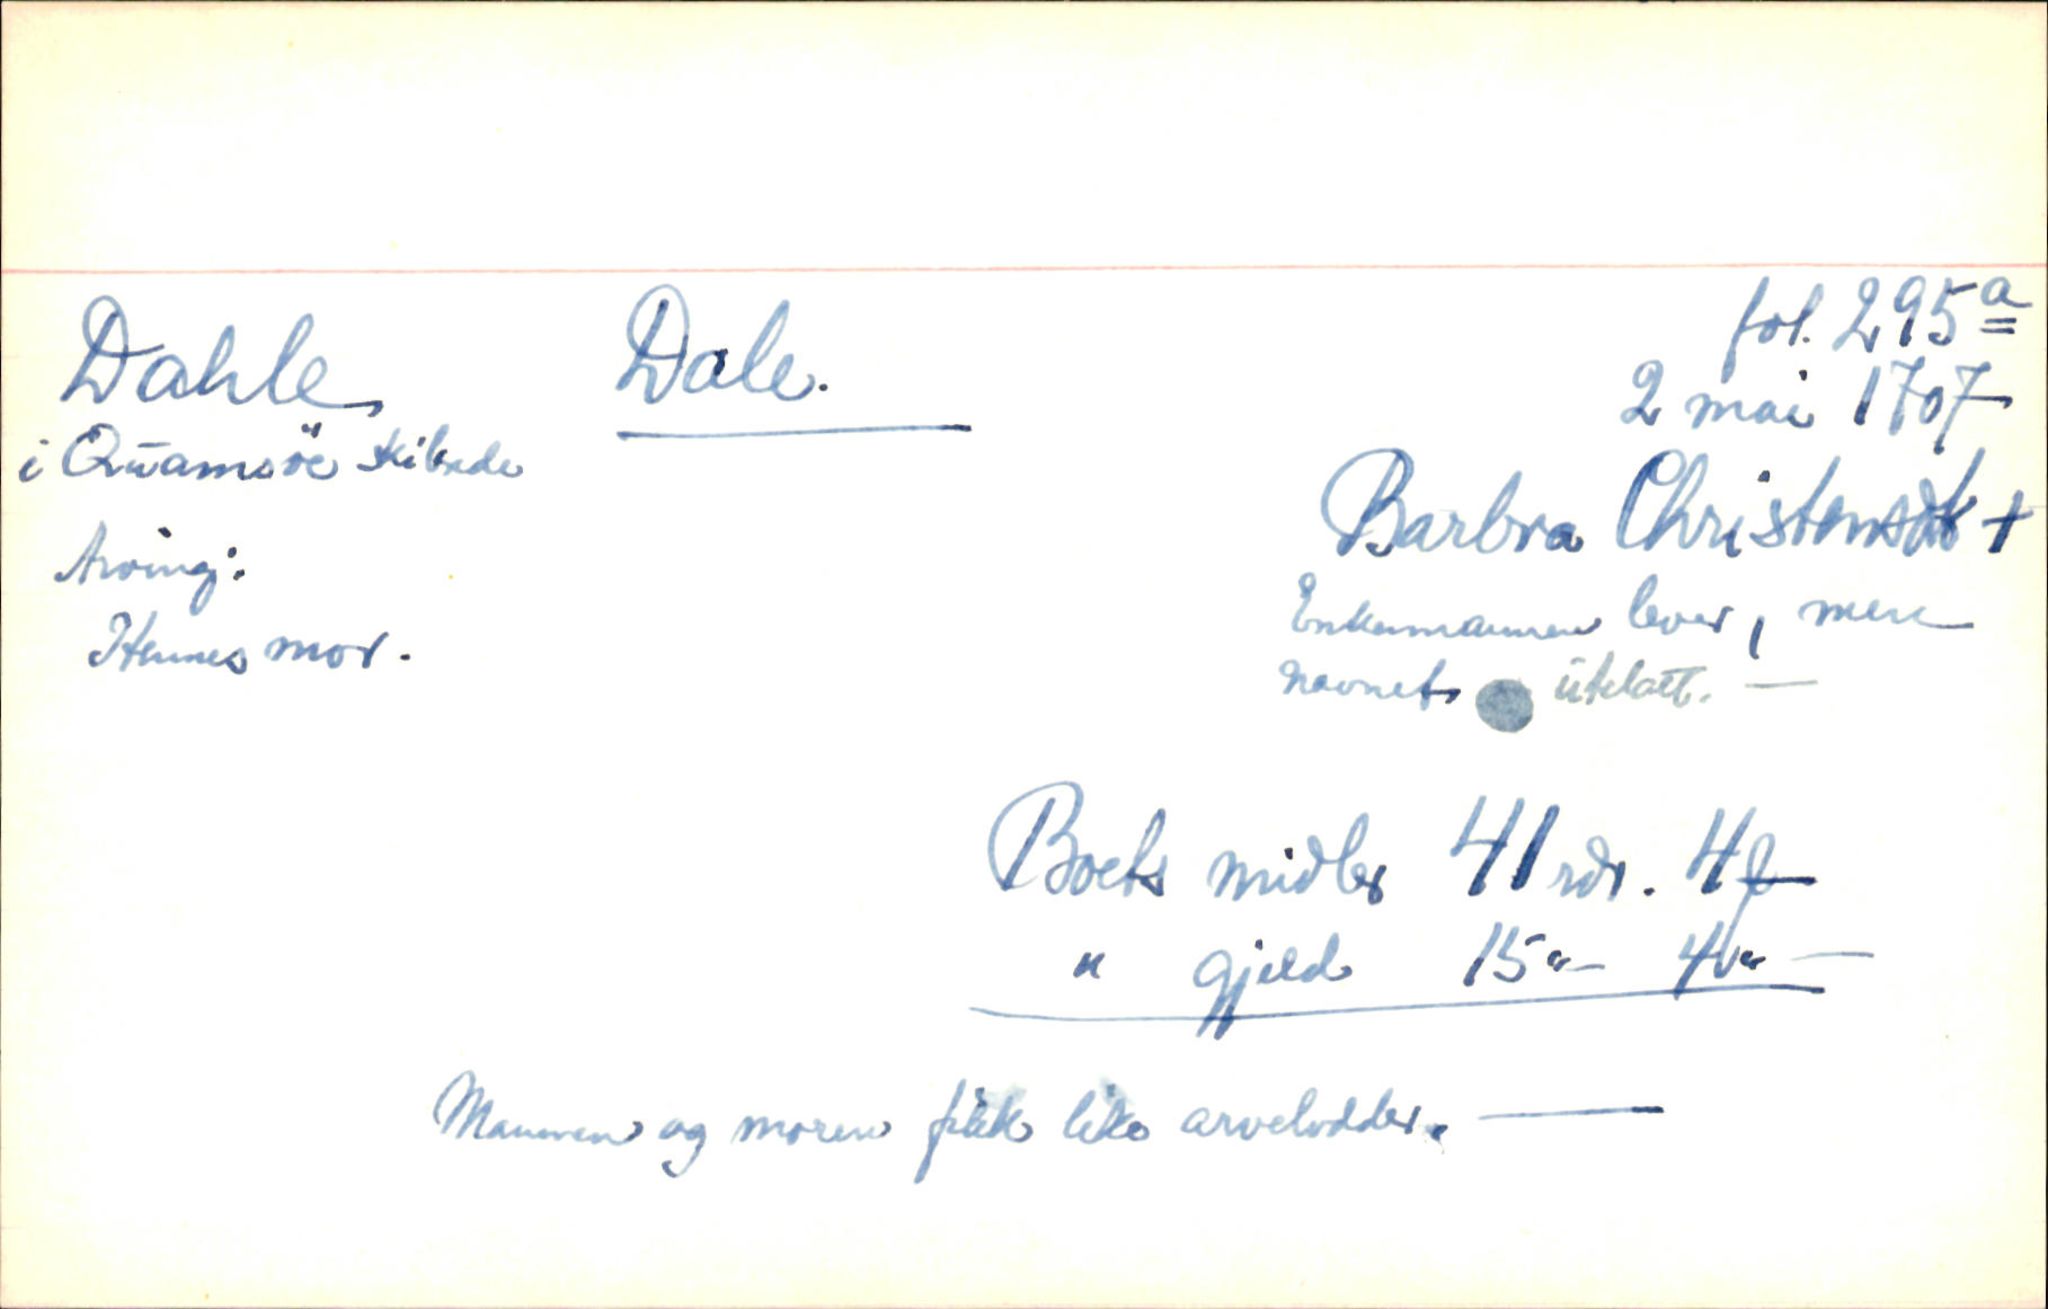 Dahle, Dale.
i Qūamsöe skibrede
fol. 295a
2 mai 1707
Barbra Christensdt +
Arving:
Hennes mor.
Enkemannen lever, men
navnet utelatt. —
Boets midler 41 rdr. 4 ƒ
" gjeld 15 "— 4 " —
Mannen og moren fikk like arvelodder. —